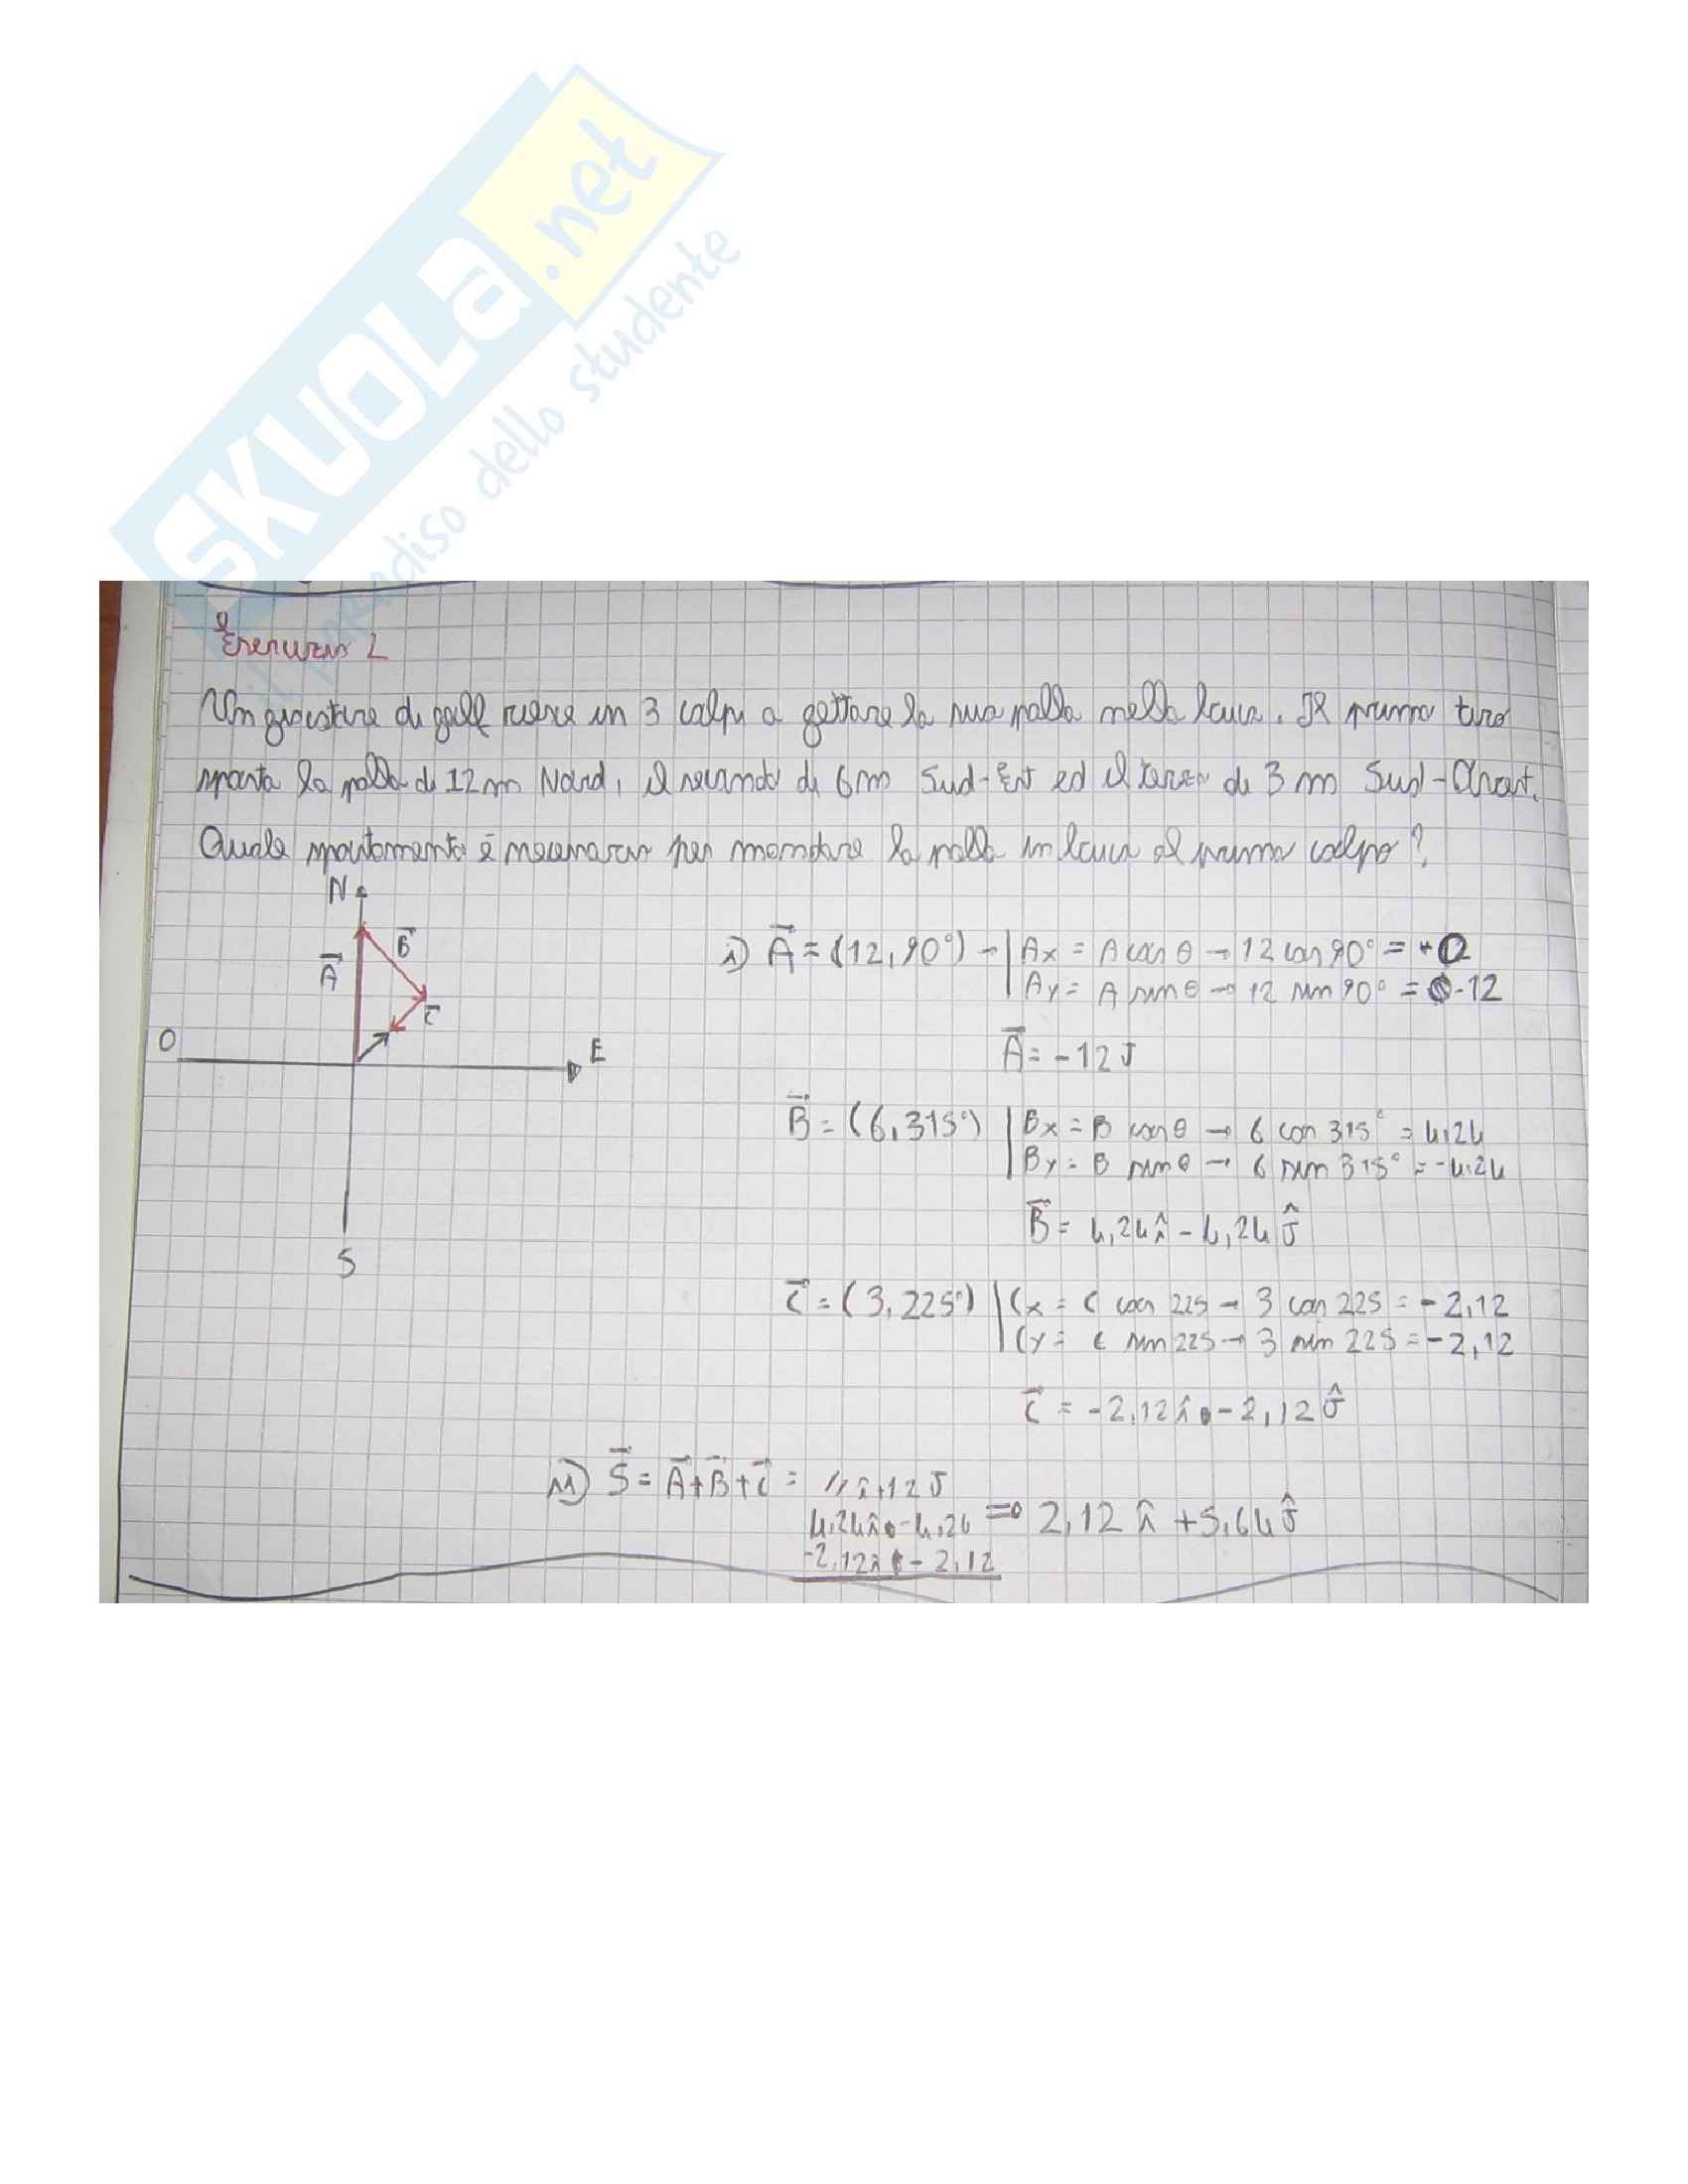 SKUOLA.net
il paradiso dello studente
Esercizio 2
Un giocatore di golf riesce in 3 colpi a gettare la sua palla nella buca. Il primo tiro
sposta la palla di 12 m Nord, il secondo di 6 m Sud-Est ed il terzo di 3 m Sud-Ovest.
Quale spostamento è necessario per mandare la palla in buca al primo colpo?
N
A
B
C
O
E
S
i) A = (12, 90°) → | Ax = A cos θ → 12 cos 90° = 0
Ay = A sin θ → 12 sin 90° = -12
A = -12 J
B = (6, 315°) | Bx = B cos θ → 6 cos 315° = 4,24
By = B sin θ → 6 sin 315° = -4,24
B = 4,24 î - 4,24 ĵ
C = (3, 225°) | Cx = C cos 225 → 3 cos 225 = -2,12
Cy = C sin 225 → 3 sin 225 = -2,12
C = -2,12 î - 2,12 ĵ
ii) S = A + B + C = // î + 12 J
4,24 î - 4,24 ⇒ 2,12 î + 5,64 ĵ
-2,12 î - 2,12